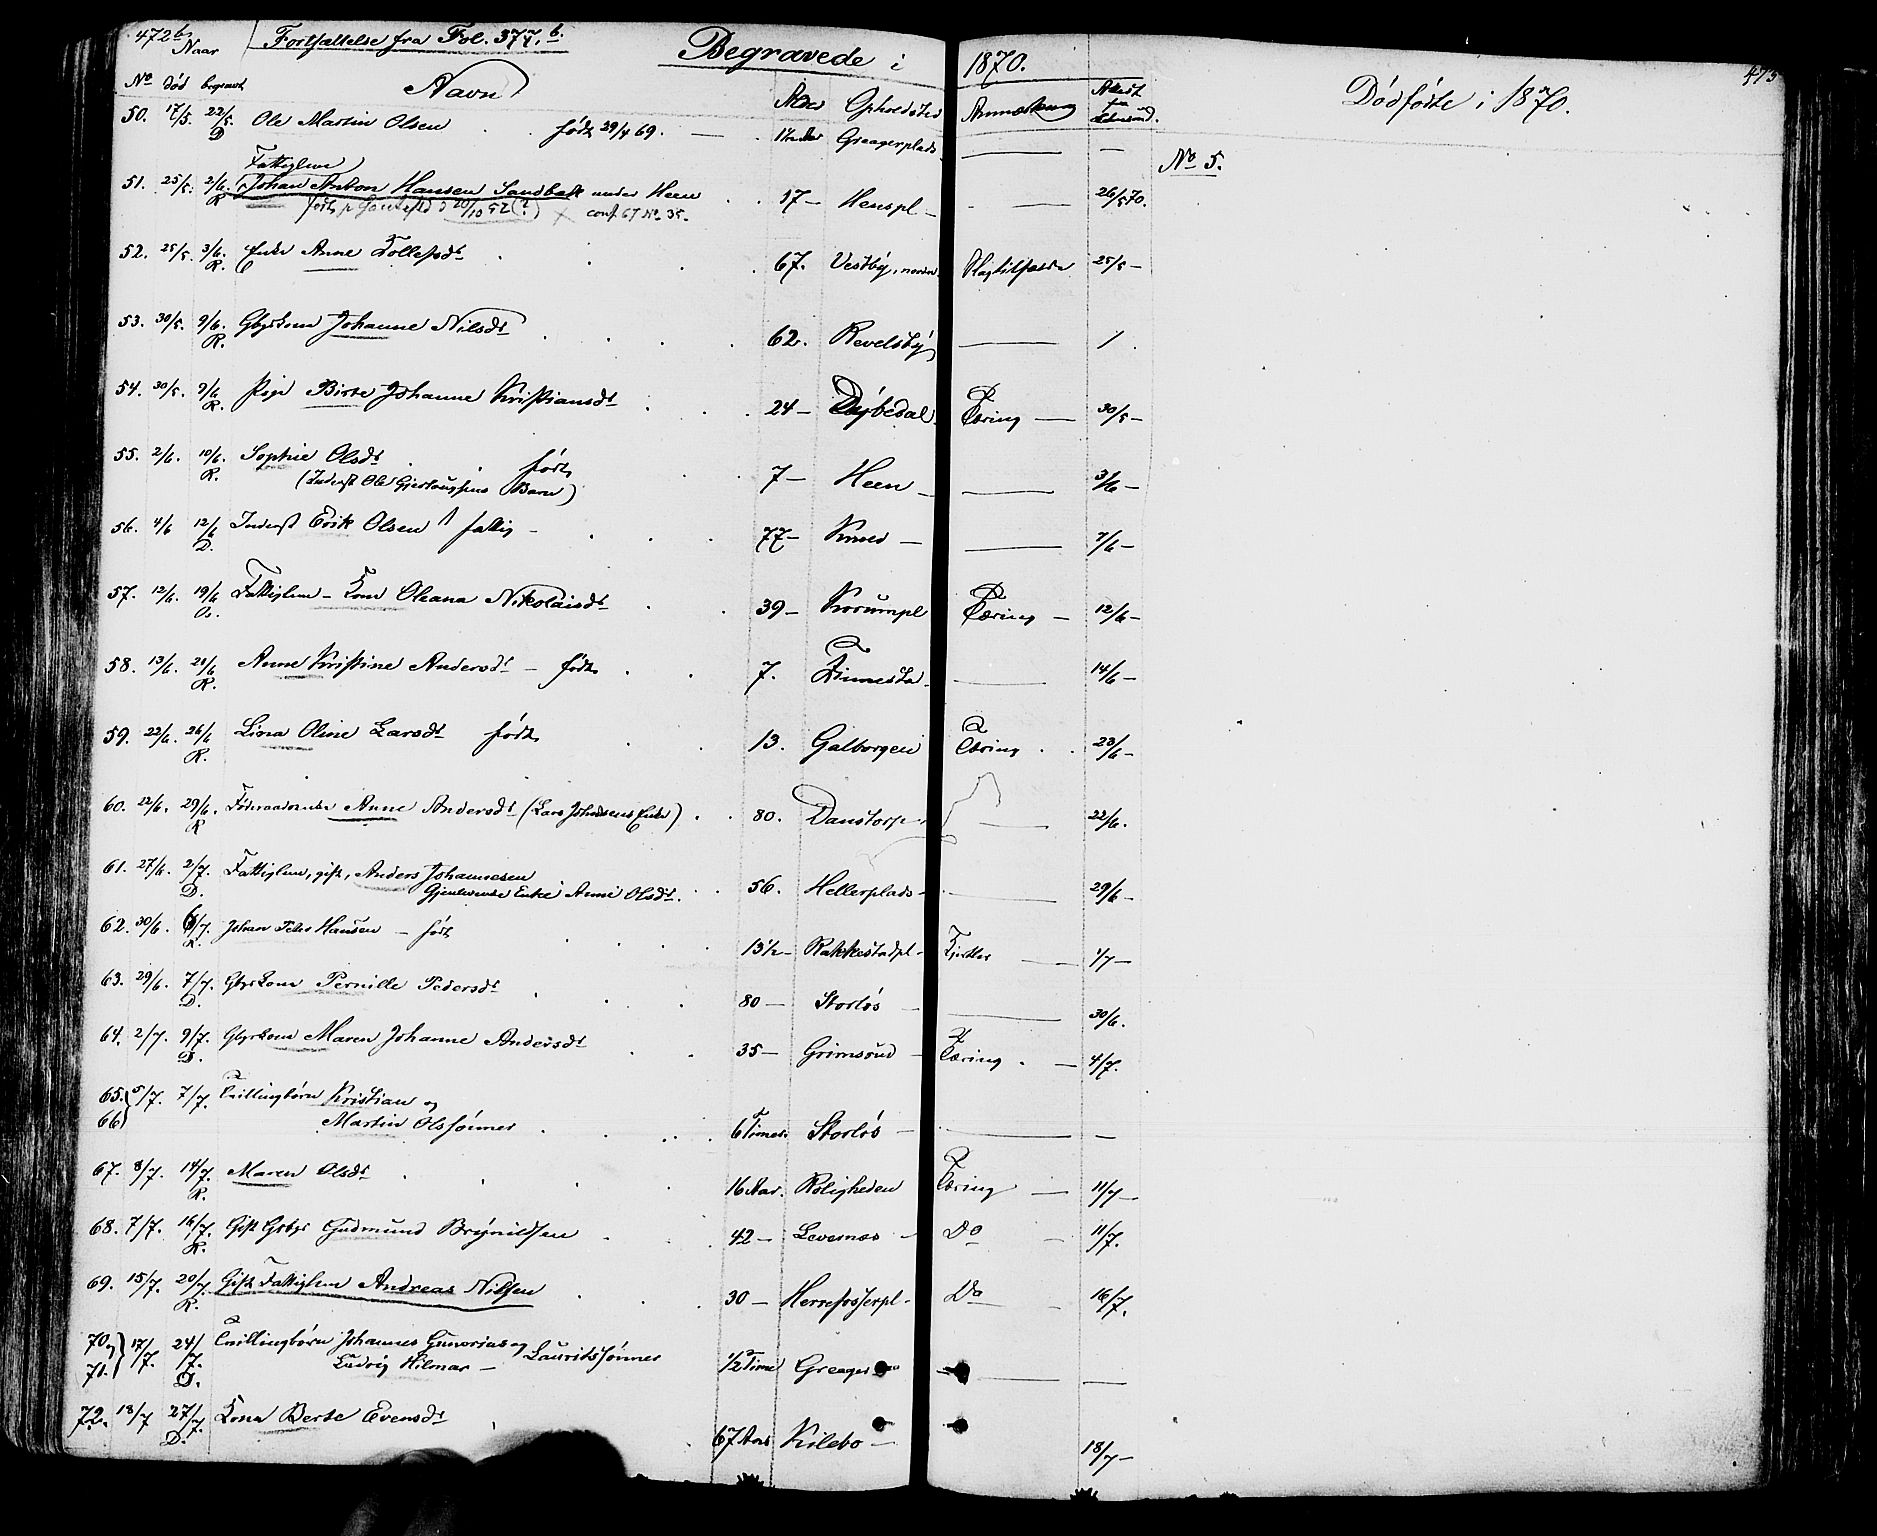 472b. Fortsættelse fra Fol. 377, b. Begravede i 1870. 473
Naar
No død begravet Navn Alder Opholdssted Anmærkning Anm. fra Lehnsmd. Dødfødte i 1870.
50. 17/5. 22/5. D Ole Martin Olsen . født 29/4 69. — . Greagerplads — —
No 5.
Fattiglem
51. 25/5. 2/6. R Johan Anton Hansen Sandbæk under Heen . . 17 — Henspl — — 26/5 70.
født 20/10 52 (?) × conf. 67 No 35.
52. 25/5. 3/6. R. Enke Anne Tollefsdt . . . 67. Vestby, nordre 25/5 —
53. 30/5. 9/6. R. Gbrkone Johanne Nilsdt . . . . 62. Revelsby — /
54. 30/5. 9/6. R. Pige Birte Johanne Kristiansdt . . . 24 — Dybedal Tæring — 30/5 —
55. 2/6. 10/6. R. Sophie Olsdt . . født
(Inderst Ole Gjerlaugsens Barn) 7 — Heen — — 3/6 —
56. 4/6 12/6 D. Inderst Erik Olsen / fattig — . . . 77 — — — 7/6 —
57. 12/6. 19/6 Os. Fattiglem — Kone Oleana Nikolaisdt . . 39 — Korumpl Tæring — 12/6 —
58. 13/6. 21/6 R. Anne Kristine Andersdt — født . . 7. Finnestad — 14/6 —
59. 22/6. 26/6 R. Lina Oline Larsdt født . . 13. Galborgen Tæring . . 23/6 —
60. 22/6. 29/6. R Føderaadsenke Anne Andersdt (Lars Johnsens Enke) . . 80. Danstorp — 22/6.
61. 27/6. 2/7. D. Fattiglem, gift, Anders Johannesen
Gjenlevende Enke Anne Olsdt. . . 56. Hellerplads — — 29/6 —
62. 30/6. 6/7. R. Johan Peter Hansen — født . . . . 13 1/2 — Rakkestadpl — Kjertler — 1/7 —
63. 29/6. 7/7. D. Gbrkone Pernille Pedersdt . . . 80 — Storløs — — 30/6.
64. 2/7. 9/7. D. Gbrkone Maren Johanne Andersdt . . 35 — Grimsund — Tæring . — 4/7.
65. 5/7. 7/7. Tvillingbørn Kristian og
66 Martin Olssønner . . . . . 6 Timer. Storløs — — —
67. 8/7. 14/7. R. Maren Olsdt . . . . 16 Aar. Roligheden Tæring — 11/7 —
68. 7/7. 16/7. R. Gift Gbbr Gudmund Brynildsen . . . 42 — Levernæs — Do — 11/7.
69. 15/7. 20/7 R. Gift Fattiglem Andreas Nilsen . . . 30 — Herrefosserpl — Do — 16/7.
70 og 17/7. 24/7. D. Tvillingbørn Johannes Gunerius og
71. Ludvig Hilmar — Lauritssønner 1/2 Time Greager — —
72. 18/7 27/7. D. Kone Berte Evensdt . . 67 Aar Kilebo — 18/7 —